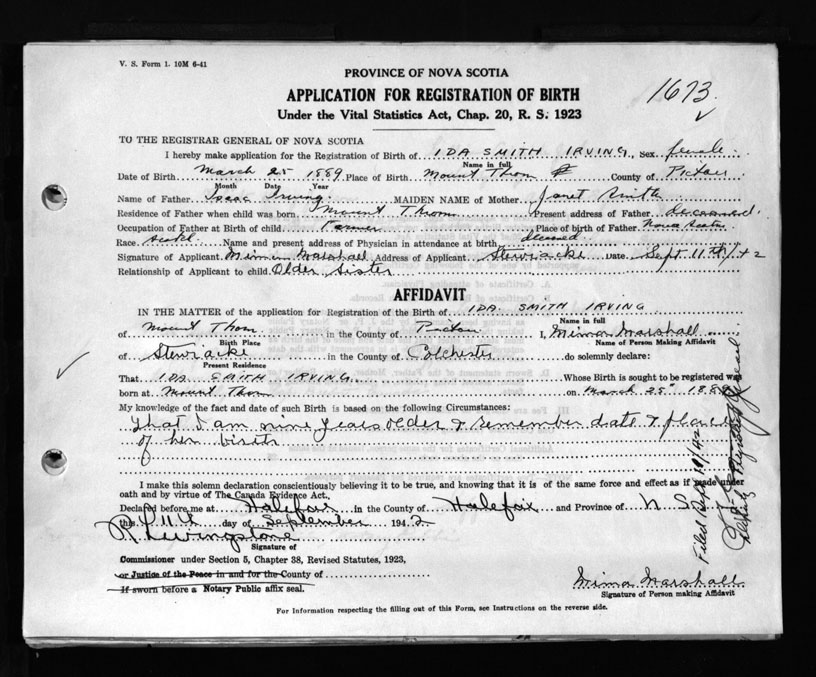 V. S. Form 1. 10M 6-41
PROVINCE OF NOVA SCOTIA
1673
APPLICATION FOR REGISTRATION OF BIRTH
Under the Vital Statistics Act, Chap. 20, R. S. 1923
TO THE REGISTRAR GENERAL OF NOVA SCOTIA
I hereby make application for the Registration of Birth of IDA SMITH IRVING, Sex female.
Name in full
Date of Birth March 25 1889 Place of Birth Mount Thom County of Pictou
Month Date Year
Name of Father Isaac Irving MAIDEN NAME of Mother Janet Smith
Residence of Father when child was born Mount Thom Present address of Father deceased.
Occupation of Father at Birth of child Farmer Place of birth of Father Nova Scotia
Race Name and present address of Physician in attendance at birth deceased
Signature of Applicant Mima Marshall Address of Applicant Stewiacke Date Sept. 11th/42
Relationship of Applicant to child Older Sister
AFFIDAVIT
IN THE MATTER of the application for Registration of the Birth of IDA SMITH IRVING
Name in full
of Mount Thom in the County of Pictou I, Mima Marshall
Birth Place Name of Person Making Affidavit
of Stewiacke in the County of Colchester do solemnly declare:
Present Residence
That IDA SMITH IRVING Whose Birth is sought to be registered was
born at Mount Thom on March 25 1889
My knowledge of the fact and date of such Birth is based on the following Circumstances:
That I am nine years older & remember date & place
of her birth
I make this solemn declaration conscientiously believing it to be true, and knowing that it is of the same force and effect as if made under
oath and by virtue of The Canada Evidence Act.
Declared before me at Halifax in the County of Halifax and Province of N S
this 11th day of September 1942
R Livingstone
Signature of
Commissioner under Section 5, Chapter 38, Revised Statutes, 1923,
or Justice of the Peace in and for the County of
If sworn before a Notary Public affix seal.
Mima Marshall
Signature of Person making Affidavit
For Information respecting the filling out of this Form, see Instructions on the reverse side.
Filed Sept
Deputy Registrar General.